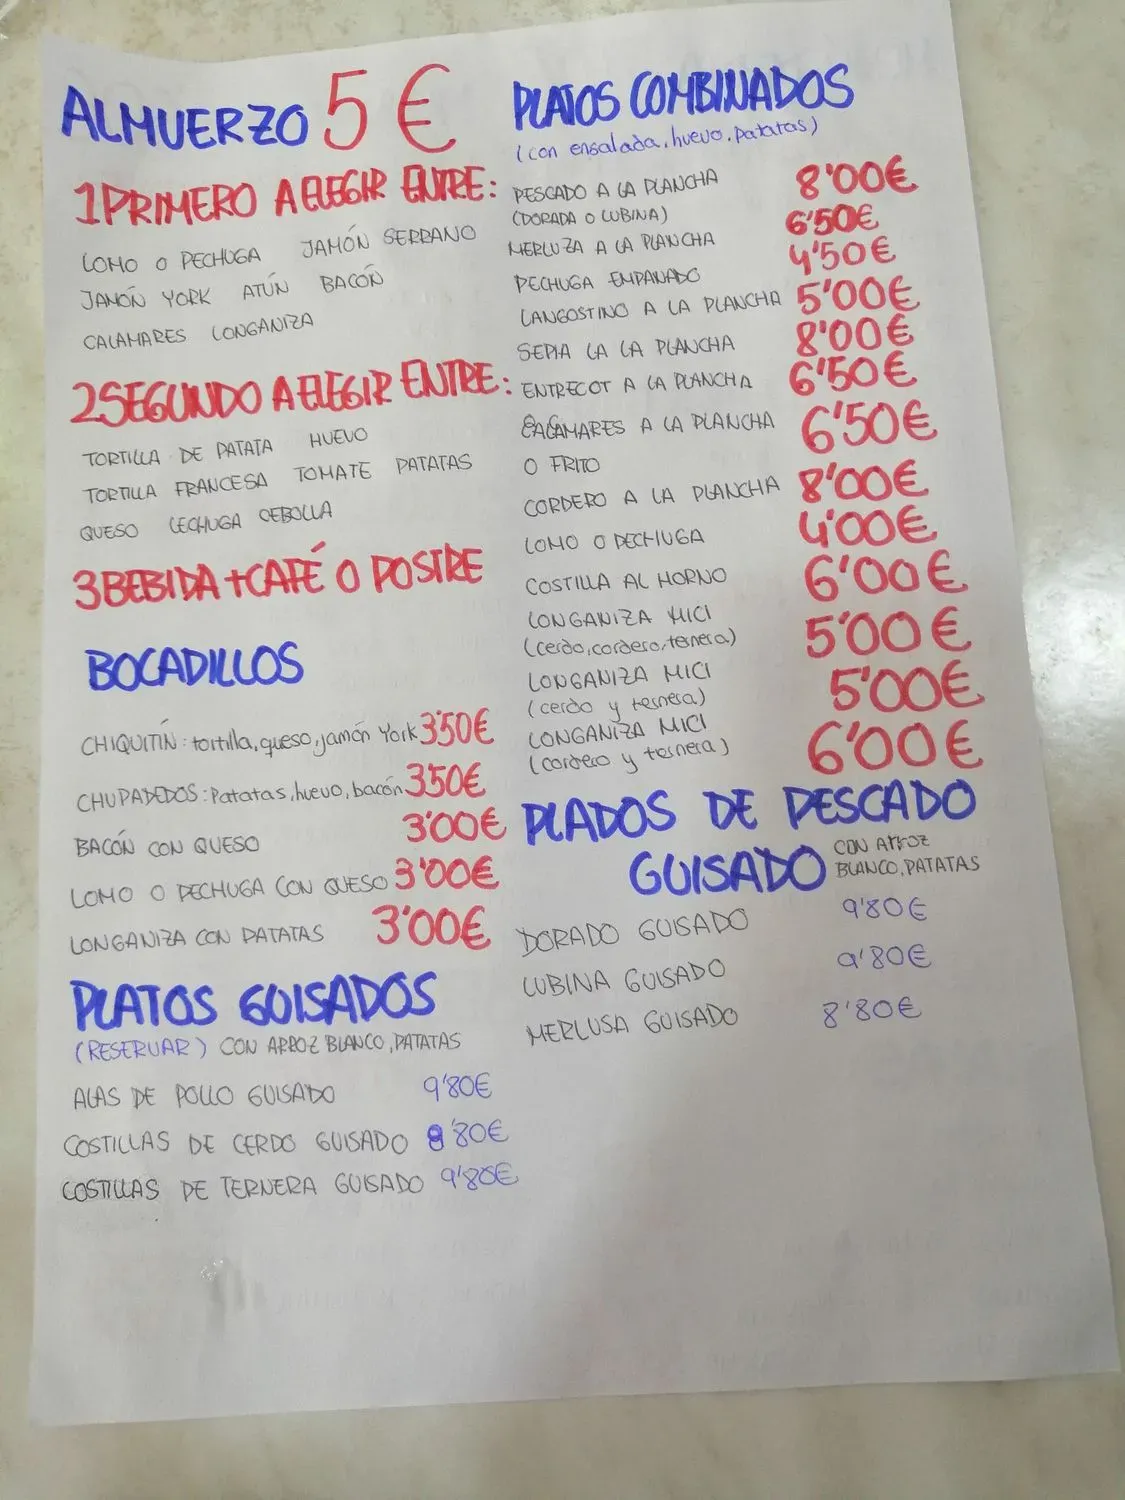 ALMUERZO 5 €
1 PRIMERO A ELEGIR ENTRE:
LOMO O PECHUGA JAMÓN SERRANO
JAMÓN YORK ATÚN BACÓN
CALAMARES LONGANIZA
2 SEGUNDO A ELEGIR ENTRE:
TORTILLA DE PATATA HUEVO
TORTILLA FRANCESA TOMATE PATATAS
QUESO LECHUGA CEBOLLA
3 BEBIDA + CAFÉ O POSTRE
BOCADILLOS
CHIQUITÍN: tortilla, queso, jamón York 3'50€
CHUPADEDOS: Patatas, huevo, bacón 3'50€
BACÓN CON QUESO 3'00€
LOMO O PECHUGA CON QUESO 3'00€
LONGANIZA CON PATATAS 3'00€
PLATOS GUISADOS
(RESERVAR) CON ARROZ BLANCO, PATATAS
ALAS DE POLLO GUISADO 9'80€
COSTILLAS DE CERDO GUISADO 8'80€
COSTILLAS DE TERNERA GUISADO 9'80€
PLATOS COMBINADOS
(con ensalada, huevo, patatas)
PESCADO A LA PLANCHA 8'00€
(DORADA O LUBINA)
MERLUZA A LA PLANCHA 6'50€
PECHUGA EMPANADO 4'50€
LANGOSTINO A LA PLANCHA 5'00€
SEPIA LA LA PLANCHA 8'00€
ENTRECOT A LA PLANCHA 6'50€
CALAMARES A LA PLANCHA 6'50€
O FRITO
CORDERO A LA PLANCHA 8'00€
LOMO O PECHUGA 4'00€
COSTILLA AL HORNO 6'00€
LONGANIZA MICI 5'00€
(cerdo, cordero, ternera)
LONGANIZA MICI 5'00€
(cerdo y ternera)
LONGANIZA MICI 6'00€
(cordero y ternera)
PLADOS DE PESCADO
GUISADO CON ARROZ
BLANCO, PATATAS
DORADO GUISADO 9'80€
LUBINA GUISADO 9'80€
MERLUSA GUISADO 8'80€